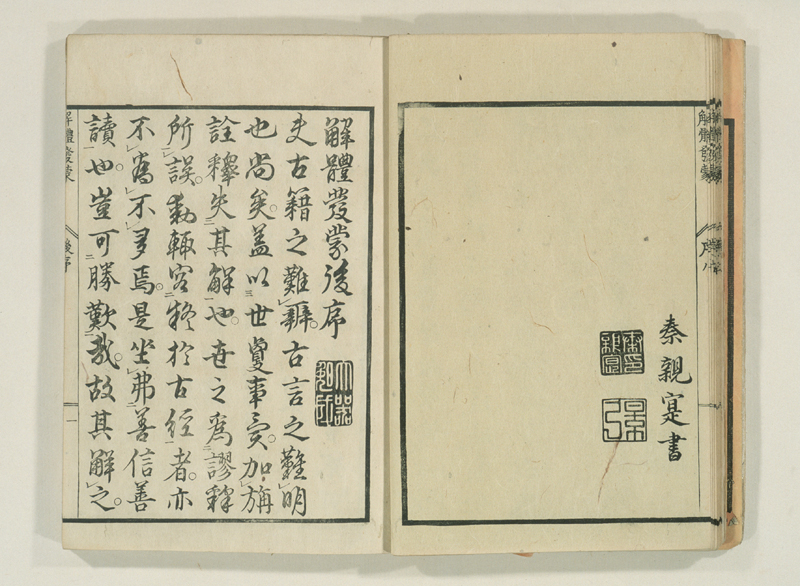 秦親寔書
解體發蒙後序
夫古籍之難辨。古言之難明
也尚矣。蓋以世夐事異。加旃
詮釋失其解也。世之爲謬釋
所誤。動輒容疑於古經者。亦
不爲不多焉。是坐弗善信善
讀也。豈可勝歎哉。故其解之。
解體發蒙
後序
一